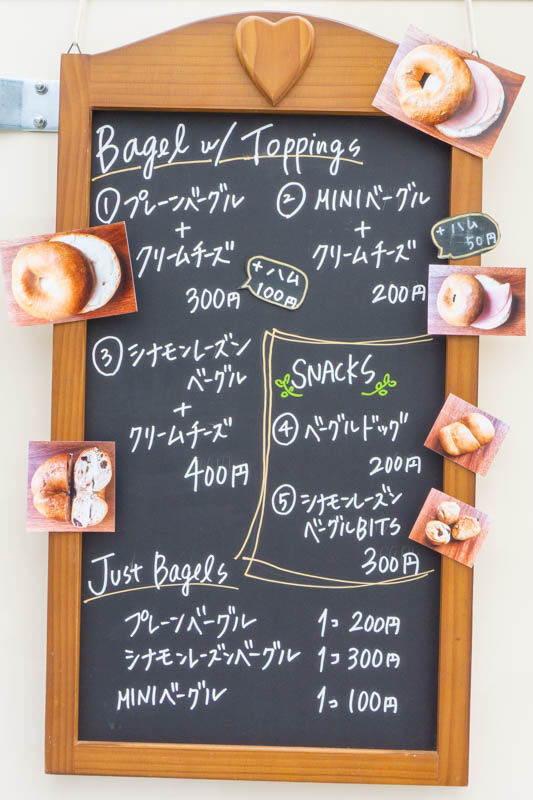 Bagel w/ Toppings
① プレーンベーグル
+
クリームチーズ
300円
+ハム
100円
② MINIベーグル
+
クリームチーズ
200円
+ハム
50円
③ シナモンレーズン
ベーグル
+
クリームチーズ
400円
SNACKS
④ ベーグルドッグ
200円
⑤ シナモンレーズン
ベーグルBITS
300円
Just Bagels
プレーンベーグル 1コ 200円
シナモンレーズンベーグル 1コ 300円
MINIベーグル 1コ 100円